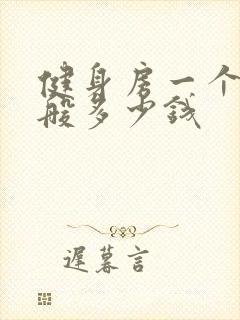 健身房一个
般多少钱
迟暮言